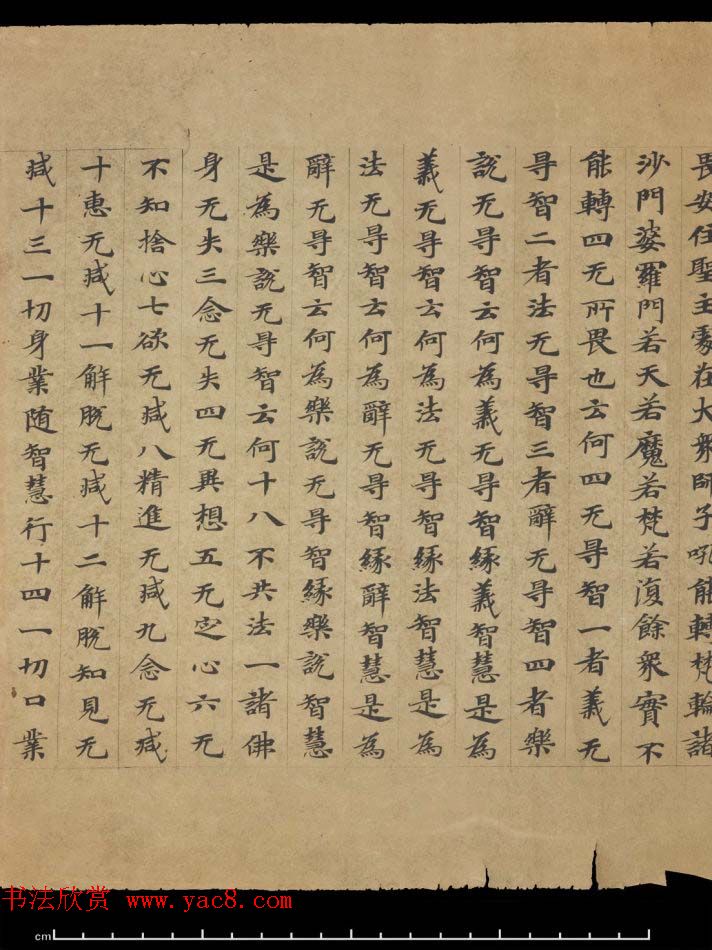 畏安住聖主處在大衆師子吼能轉梵輪諸
沙門婆羅門若天若魔若梵若復餘衆實不
能轉四无所畏也云何四无㝵智一者義无
㝵智二者法无㝵智三者辭无㝵智四者樂
說无㝵智云何為義无㝵智緣義智慧是為
義无㝵智云何為法无㝵智緣法智慧是為
法无㝵智云何為辭无㝵智緣辭智慧是為
辭无㝵智云何為樂說无㝵智緣樂說智慧
是為樂說无㝵智云何十八不共法一諸佛
身无失三念无失四无異想五无㝎心六无
不知捨心七欲无减八精進无减九念无减
十惠无减十一解脫无减十二解脫知見无
减十三一切身業随智慧行十四一切口業
书法欣赏 www.yac8.com
cm